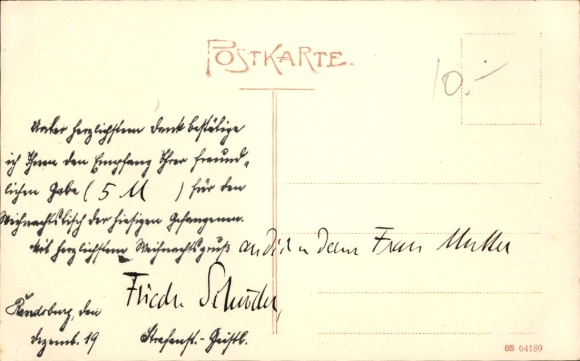 POSTKARTE.
10.-
Unter herzlichstem Dank bestätige
ich Ihnen den Empfang Ihrer freund-
lichen Gabe (5 M) für den
Weihnachtstisch der hiesigen Gefangenen.
Mit herzlichstem Weihnachtsgruß an dich u deine Frau Mutter
Friedr. Schröder,
Rendsburg, den
Dezemb. 19 Strafanst.-Geistl.
08 64189